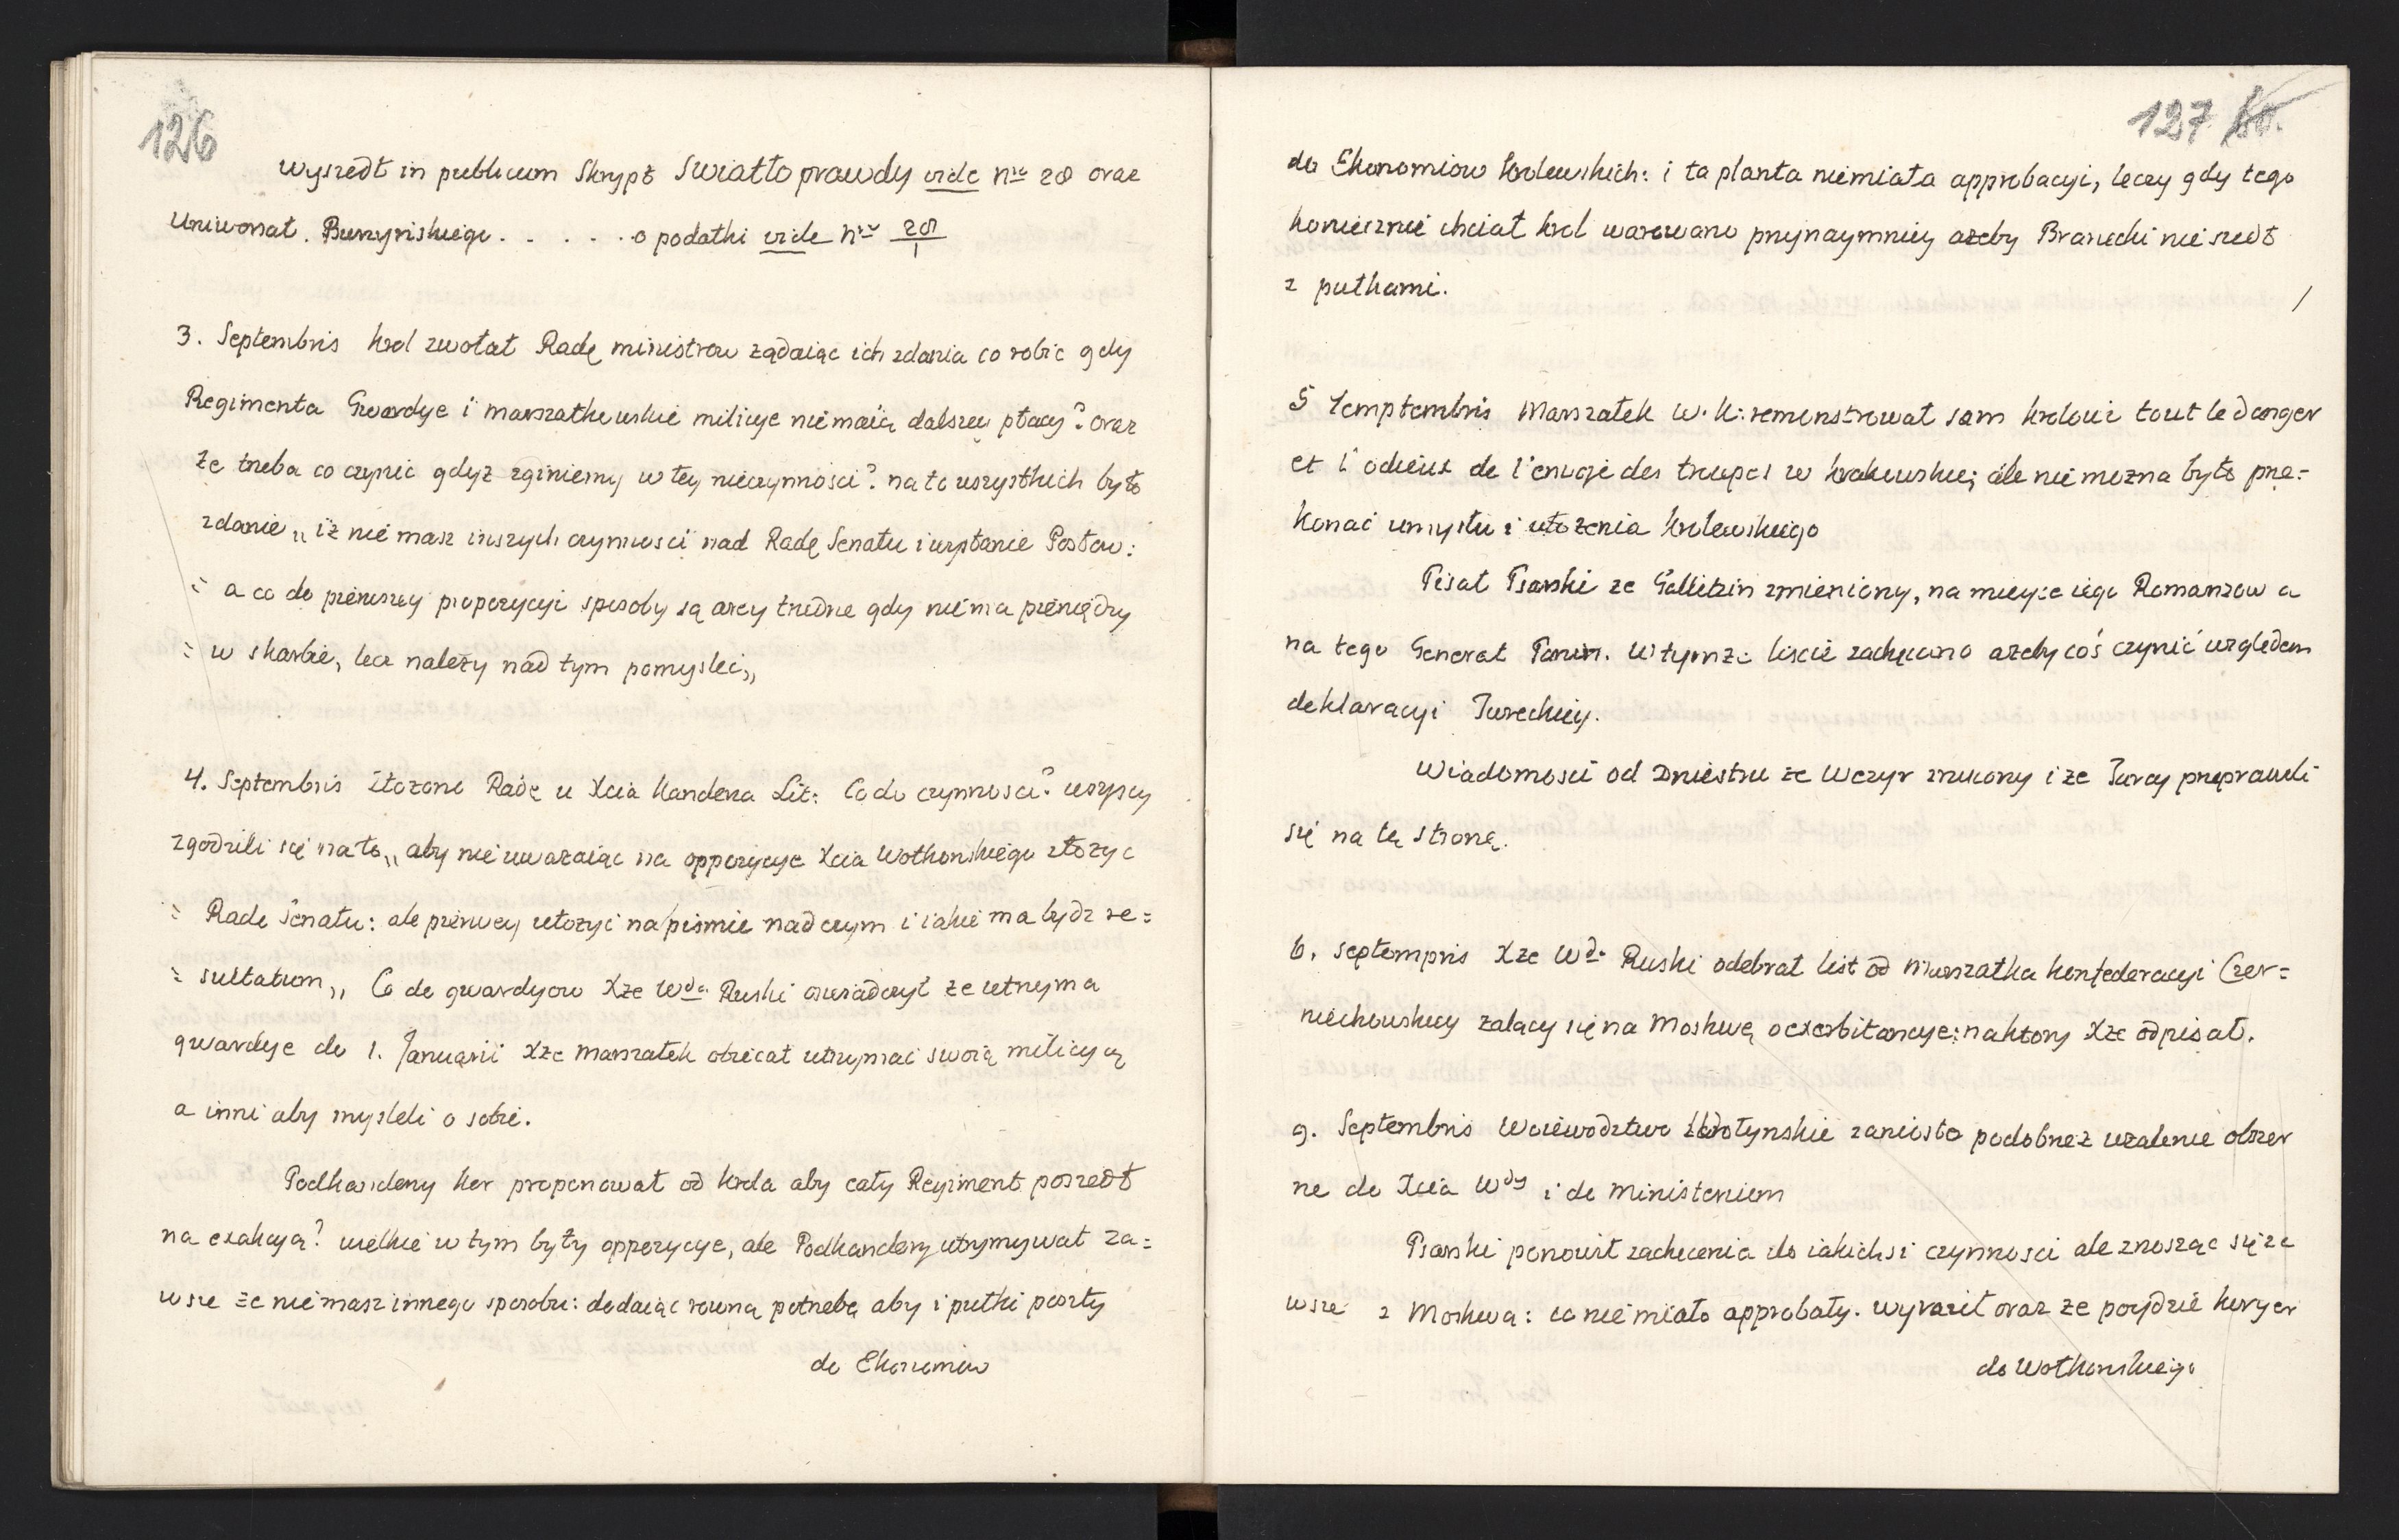 126
wyszedł in publicum Skrypt Swiatło prawdy vide nro 28 oraz
Uniwersał. Burzyńskiego. . . . . . o podatki vide nro 28/1
3. Septembris krol zwołał Radę ministrow ządaiąc ich zdania co robic gdy
Regimenta Gwardye i marszałkowskie milicye nie maią dalszey płacy? oraz
że trzeba co czynic gdyz zginiemy w tey nieczynnosci? na to wszystkich było
zdanie „ iż nie masz inszych czynnosci nad Radę Senatu i wysłanie Posłow:
= a co do pierwszey propozycyi sposoby są arcy trudne gdy nie ma pieniędzy
= w skarbie, lecz należy nad tym pomyslec „
4. Septembris złozono Radę u Xcia Kanclerza Lit: Co do czynnosci? wszyscy
zgodzili się na to „ aby nie uwazaiąc na oppozycye Xcia Wołkonskiego złozyc
= Radę Senatu: ale pierwey ułozyc na pismie nad czym i iakie ma bydz re=
= sultatum „ Co do gwardyow Xze Wda Ruski oswiadczył ze utrzyma
gwardye do 1. Januarii Xze marszałek obiecał utrzymac swoią milicyą
a inni aby mysleli o sobie.
Podkanclerzy kor proponował od krola aby cały Regiment poszedł
na exakcyą? wielkie w tym były oppozycye, ale Podkanclerzy utrzymywał za=
wsze ze nie masz innego sposobu: dodaiąc rowną potrzebę aby i pułki poszły
do Ekonomiow
127 60.
do Ekonomiow krolewskich: i ta planta nie miała approbacyi, leczy gdy tego
koniecznie chciał krol warowano przynaymniey azeby Branicki nie szedł
z pułkami.
5 Semptembris Marszałek W. K: remonstrował sam krolowi tout le danger
et l'odieux de l'envoje des troupes w krakowskie; ale nie mozna było prze=
konać umysłu i ułozenia krolewskiego
Pisał Psarski ze Gallitzin zmieniony, na mieysce iego Romanzow a
na tego Generał Panin. W tymze liscie zachęcano azeby coś czynić względem
deklaracyi Tureckiey.
Wiadomosci od Dniestru ze Wezyr zrucony i ze Turcy przeprawili
się na tę stronę.
6. septempris Xze Wda Ruski odebrał list od marszałka konfederacyi Czer=
niechowskiey zalący się na Moskwę o exorbitancye: na ktory Xze odpisał.
9. Septembris Woiewodztwo Wołynskie zaniosło podobnez uzalenie obszer
ne do Xcia Wdy i do Ministerium
Psarski ponowił zachęcenia do iakichsi czynnosci ale znosząc się za
wsze z Moskwą: co nie miało approbaty. wyraził oraz ze poydzie kuryer
do Wołkonskiego